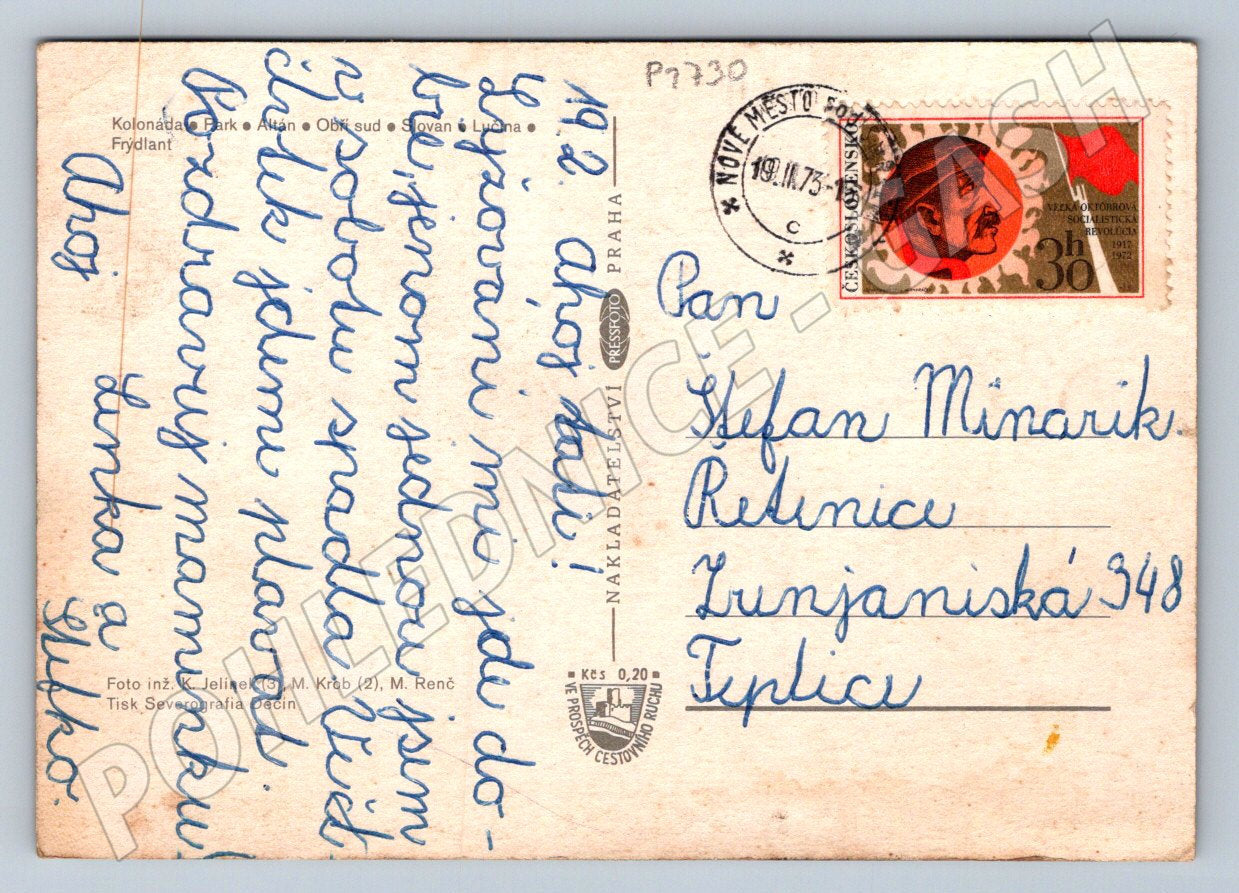 P1730
Kolonáda • Park • Altán • Obří sud • Slovan • Lučina •
Frýdlant
19.2. ahoj tati!
Lyžování mi jde do-
bře, jenom jednou jsem
v sobotu spadla.
jdem plavat.
Pozdravuj maminku!
Ahoj
Lenka a
Foto inž. K. Jelínek (3), M. Krob (2), M. Renč
Tisk Severografia Děčín
NAKLADATELSTVÍ PRESSFOTO PRAHA
Kčs 0,20
VE PROSPĚCH CESTOVNÍHO RUCHU
NOVÉ MĚSTO POD
19.II.73-1
c
ČESKOSLOVENSKO
VEĽKÁ OKTÓBROVÁ
SOCIALISTICKÁ
REVOLÚCIA
1917
1972
30h
Pan
Štefan Minarik
Řetenice
Zrenjaninská 348
Teplice
POHLEDNICE - CASH